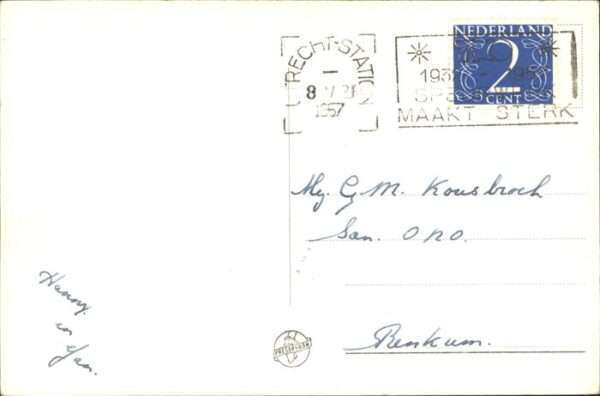 UTRECHT-STATION
8
1957
MAAKT STERK
NEDERLAND
2
CENT
Mej. G. M. Kousbroek
San. O.N.O.
Renkum.
Hanny
en
Jan.